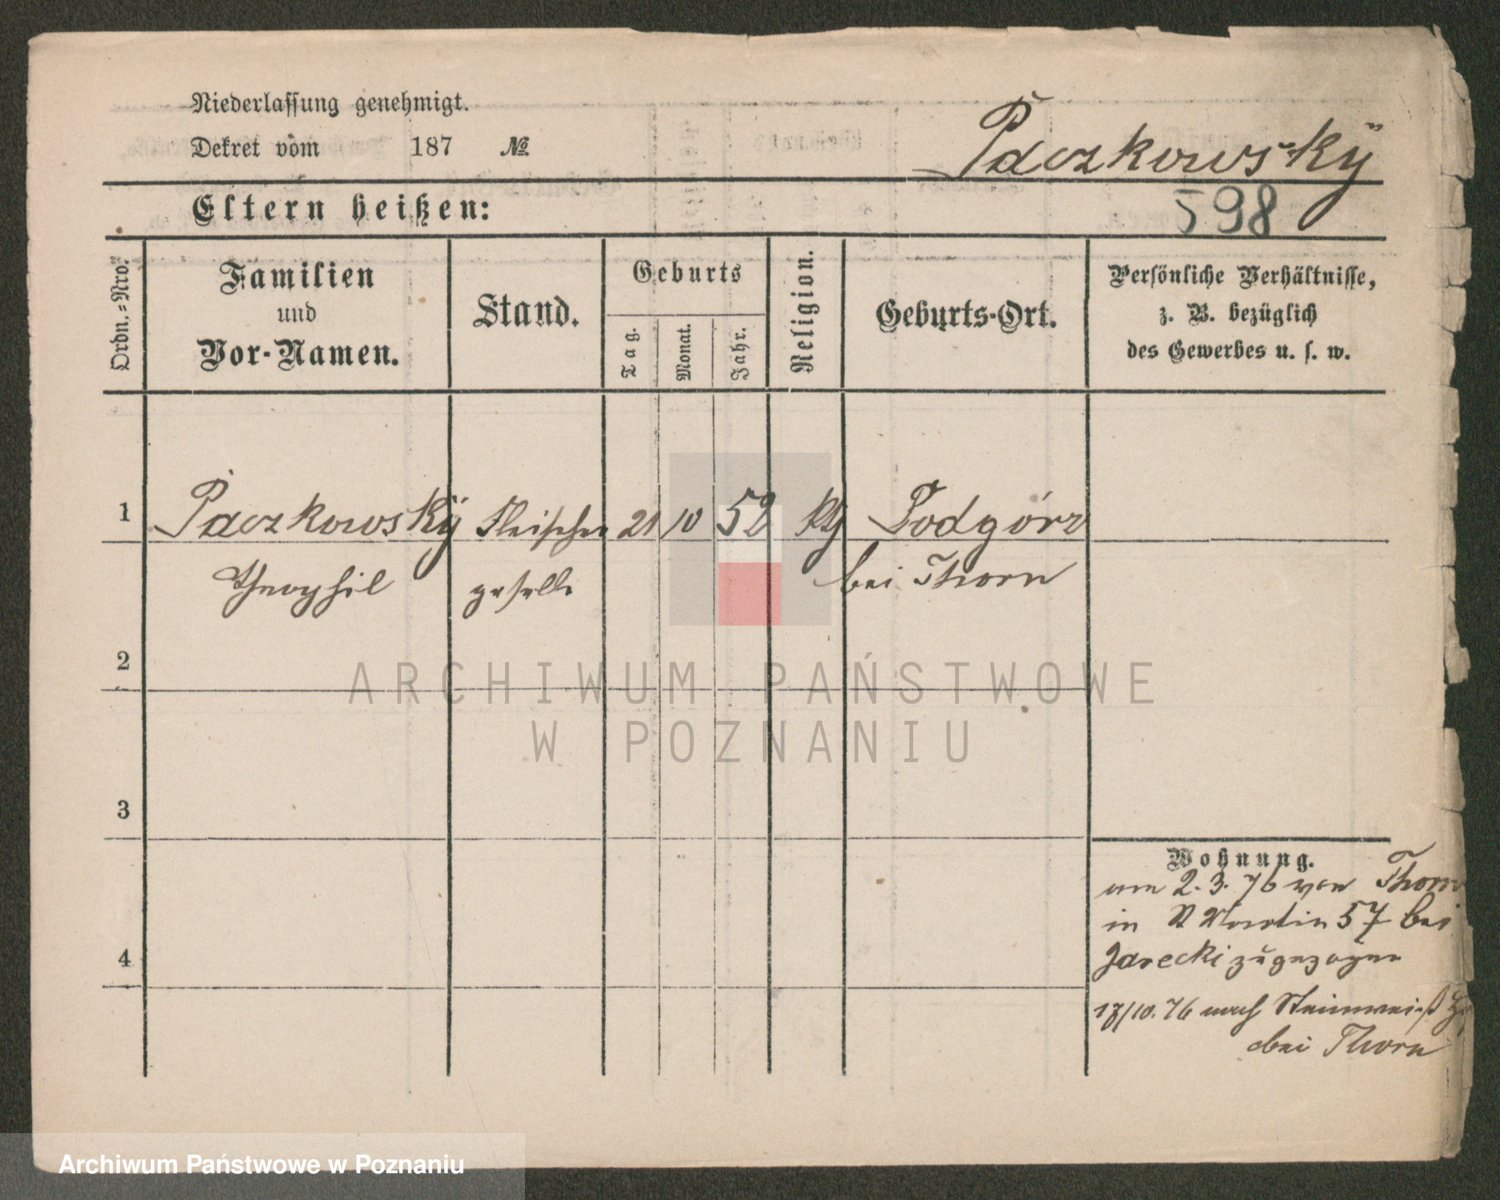 Niederlassung genehmigt.
Dekret vom 187 №
Paczkowsky
598
Eltern heißen:
Ordn.=Nro.
Familien
und
Vor-Namen.
Stand.
Geburts
Tag.
Monat.
Jahr.
Religion.
Geburts-Ort.
Persönliche Verhältnisse,
z. B. bezüglich
des Gewerbes u. s. w.
1 Paczkowsky Fleischer 21 10 52 kth Podgórz
Theophil geselle bei Thorn
2
3
4
Wohnung.
am 2. 3. 76 von Thorn
in St Martin 57 bei
Jarecki zugezogen
17/10. 76 nach
bei Thorn
ARCHIWUM PAŃSTWOWE
W POZNANIU
Archiwum Państwowe w Poznaniu